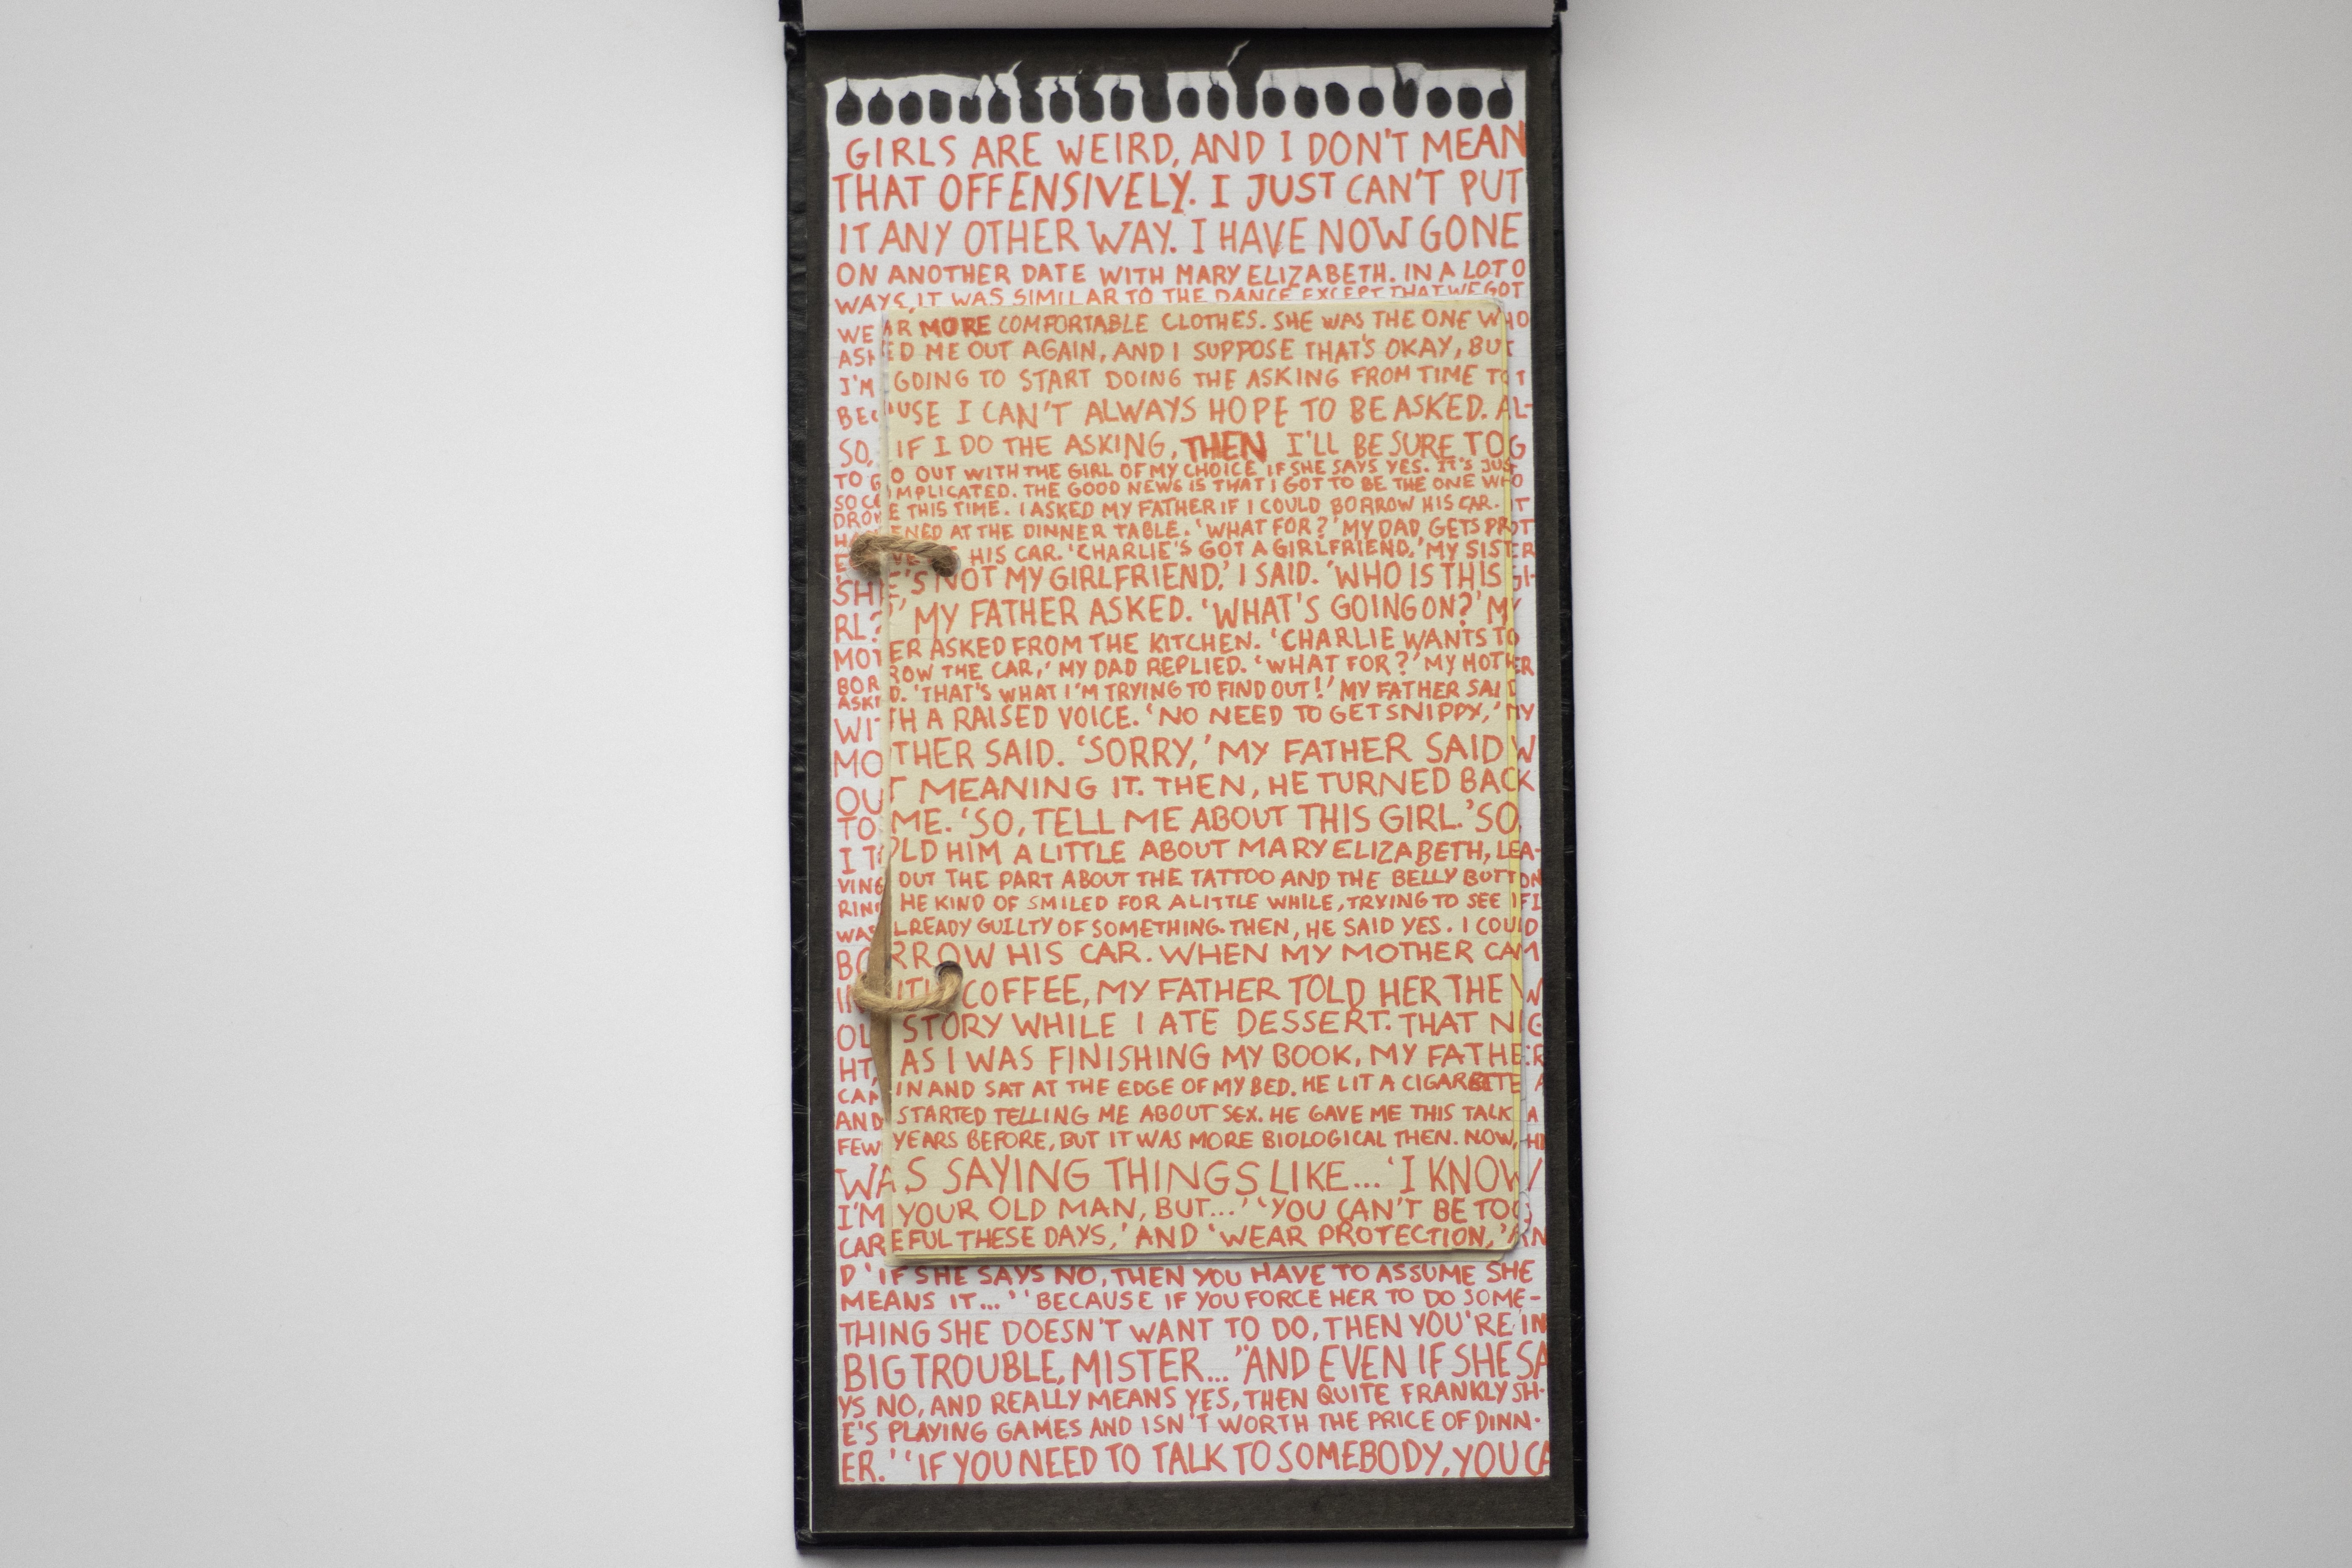 GIRLS ARE WEIRD, AND I DON'T MEAN
THAT OFFENSIVELY. I JUST CAN'T PUT
IT ANY OTHER WAY. I HAVE NOW GONE
ON ANOTHER DATE WITH MARY ELIZABETH. IN A LOT O
WAYS, IT WAS SIMILAR TO THE DANCE EXCEPT THAT WE GOT
WEAR MORE COMFORTABLE CLOTHES. SHE WAS THE ONE WHO
ASKED ME OUT AGAIN, AND I SUPPOSE THAT'S OKAY, BUT
I'M GOING TO START DOING THE ASKING FROM TIME TO T
BECAUSE I CAN'T ALWAYS HOPE TO BE ASKED. AL-
SO, IF I DO THE ASKING, THEN I'LL BE SURE TO G
TO GO OUT WITH THE GIRL OF MY CHOICE IF SHE SAYS YES. IT'S JUST
SO COMPLICATED. THE GOOD NEWS IS THAT I GOT TO BE THE ONE WHO
DROVE THIS TIME. I ASKED MY FATHER IF I COULD BORROW HIS CAR. IT
HAPPENED AT THE DINNER TABLE. 'WHAT FOR?' MY DAD GETS PROT
E VE HIS CAR. 'CHARLIE'S GOT A GIRLFRIEND,' MY SISTER
SHE'S NOT MY GIRLFRIEND,' I SAID. 'WHO IS THIS GI-
RL?' MY FATHER ASKED. 'WHAT'S GOING ON?' MY
MOTHER ASKED FROM THE KITCHEN. 'CHARLIE WANTS TO
BORROW THE CAR,' MY DAD REPLIED. 'WHAT FOR?' MY MOTHER
ASKED. 'THAT'S WHAT I'M TRYING TO FIND OUT!' MY FATHER SAID
WITH A RAISED VOICE. 'NO NEED TO GET SNIPPY,' MY
MOTHER SAID. 'SORRY,' MY FATHER SAID W
OUT MEANING IT. THEN, HE TURNED BACK
TO ME. 'SO, TELL ME ABOUT THIS GIRL.' SO,
I TOLD HIM A LITTLE ABOUT MARY ELIZABETH, LEA-
VING OUT THE PART ABOUT THE TATTOO AND THE BELLY BUTTON
RING HE KIND OF SMILED FOR A LITTLE WHILE, TRYING TO SEE IF I
WAS ALREADY GUILTY OF SOMETHING. THEN, HE SAID YES. I COULD
BORROW HIS CAR. WHEN MY MOTHER CAM
IN WITH COFFEE, MY FATHER TOLD HER THE W
OLE STORY WHILE I ATE DESSERT. THAT NIG
HT, AS I WAS FINISHING MY BOOK, MY FATHER
CAME IN AND SAT AT THE EDGE OF MY BED. HE LIT A CIGARETTE A
AND STARTED TELLING ME ABOUT SEX. HE GAVE ME THIS TALK A
FEW YEARS BEFORE, BUT IT WAS MORE BIOLOGICAL THEN. NOW, HE
WAS SAYING THINGS LIKE... 'I KNOW
I'M YOUR OLD MAN, BUT...' 'YOU CAN'T BE TOO
CAREFUL THESE DAYS,' AND 'WEAR PROTECTION,' AN
D 'IF SHE SAYS NO, THEN YOU HAVE TO ASSUME SHE
MEANS IT...' 'BECAUSE IF YOU FORCE HER TO DO SOME-
THING SHE DOESN'T WANT TO DO, THEN YOU'RE IN
BIG TROUBLE, MISTER...' 'AND EVEN IF SHE SA
YS NO, AND REALLY MEANS YES, THEN QUITE FRANKLY SH-
E'S PLAYING GAMES AND ISN'T WORTH THE PRICE OF DINN-
ER.' 'IF YOU NEED TO TALK TO SOMEBODY, YOU CA